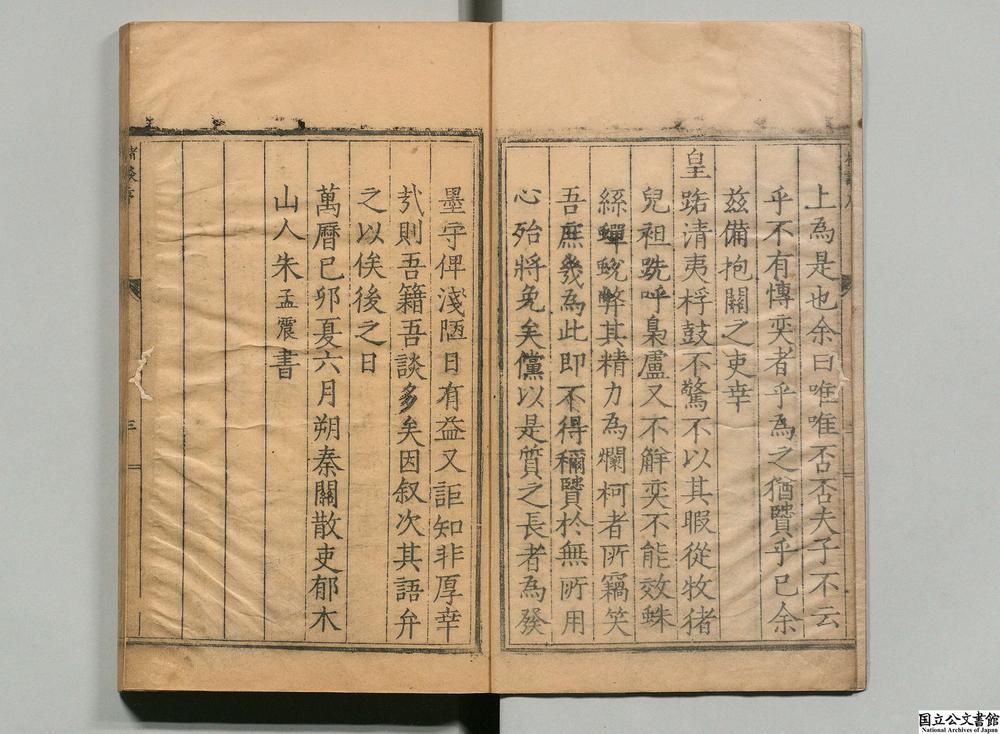 上爲是也余曰唯唯否否夫子不云
乎不有慱奕者乎爲之猶賢乎已余
茲備抱關之吏幸
皇路清夷桴鼓不驚不以其暇從牧猪
兒袒跣呼梟盧又不解奕不能效蛛
絲蟬蛻弊其精力爲爛柯者所竊笑
吾庶幾爲此即不得稱賢於無所用
心殆將免矣儻以是質之長者爲發
墨守俾淺陋日有益又詎知非厚幸
㢤則吾籍吾談多矣因叙次其語弁
之以俟後之日
萬曆己卯夏六月朔秦關散吏郁木
山人朱孟震書
三
三
国立公文書館
National Archives of Japan